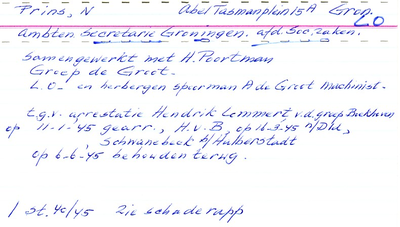 Prins, N Abel Tasmanplein 15A Gron.
LO
Ambten Secretarie Groningen. afd. Soc. zaken.
Samengewerkt met H. Poortman
Groep de Groot.
L.O. en herbergen spoorman A de Groot machinist.
t.g.v. arrestatie Hendrik Lommert v.d. groep Bierhuis
op 11-1-'45 gearr., H.v.B, op 16-3-45 n/Dld,
Schwanebeck b/Halberstadt
op 6-6-45 behouden terug.
1 st. 40/45 zie schaderapp